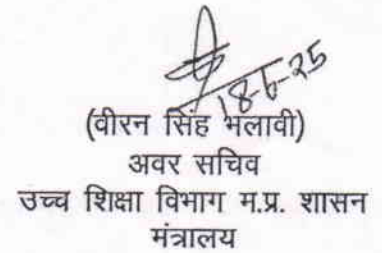 18-6-25
(वीरन सिंह भलावी)
अवर सचिव
उच्च शिक्षा विभाग म.प्र. शासन
मंत्रालय